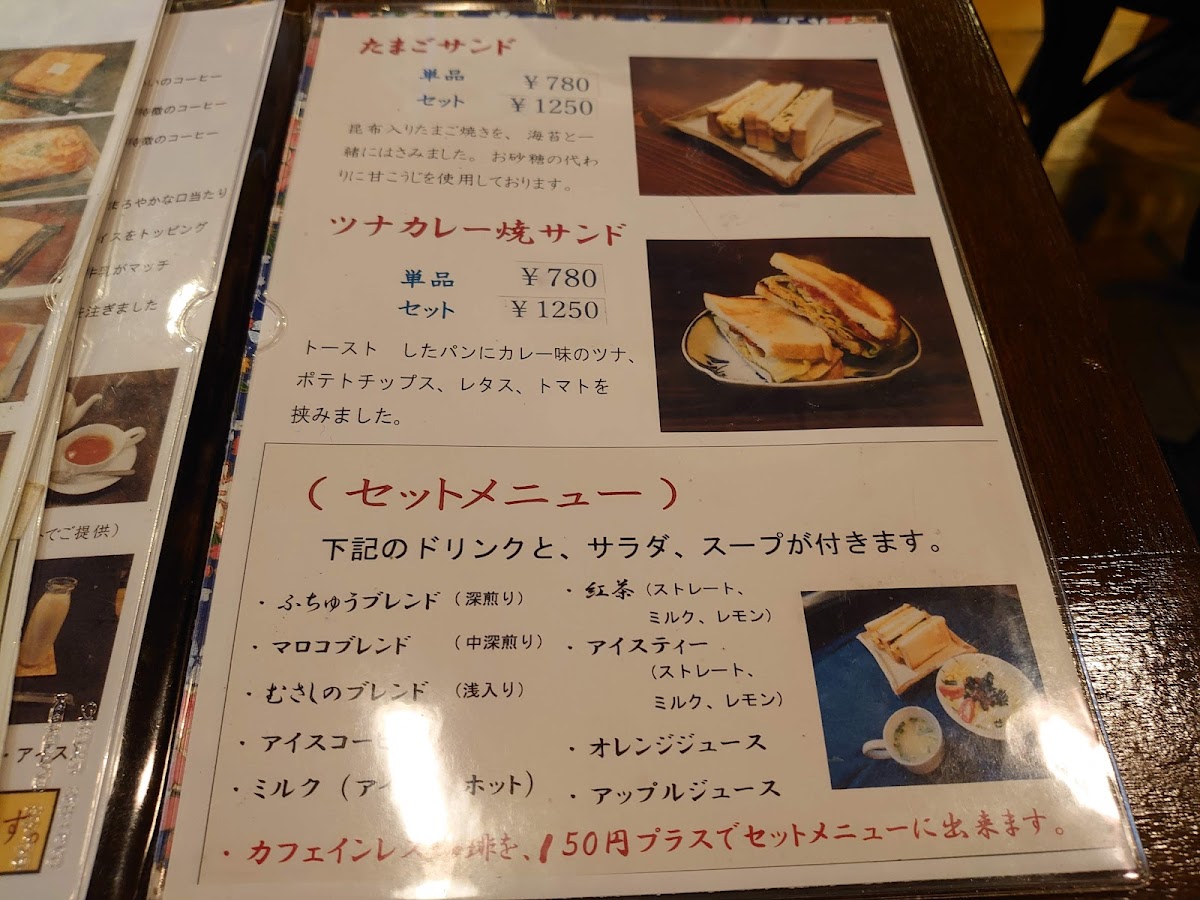 いのコーヒー
特徴のコーヒー
特徴のコーヒー
まろやかな口当たり
イスをトッピング
牛乳がマッチ
注ぎました
でご提供)
・アイス
す。
たまごサンド
単品 ¥780
セット ¥1250
昆布入りたまご焼きを、海苔と一
緒にはさみました。お砂糖の代わ
りに甘こうじを使用しております。
ツナカレー焼サンド
単品 ¥780
セット ¥1250
トースト したパンにカレー味のツナ、
ポテトチップス、レタス、トマトを
挟みました。
(セットメニュー)
下記のドリンクと、サラダ、スープが付きます。
・ふちゅうブレンド (深煎り)
・マロコブレンド (中深煎り)
・むさしのブレンド (浅入り)
・アイスコーヒ
・ミルク(アイ ホット)
・紅茶(ストレート、
ミルク、レモン)
・アイスティー
(ストレート、
ミルク、レモン)
・オレンジジュース
・アップルジュース
・カフェインレス 琲を、150円プラスでセットメニューに出来ます。